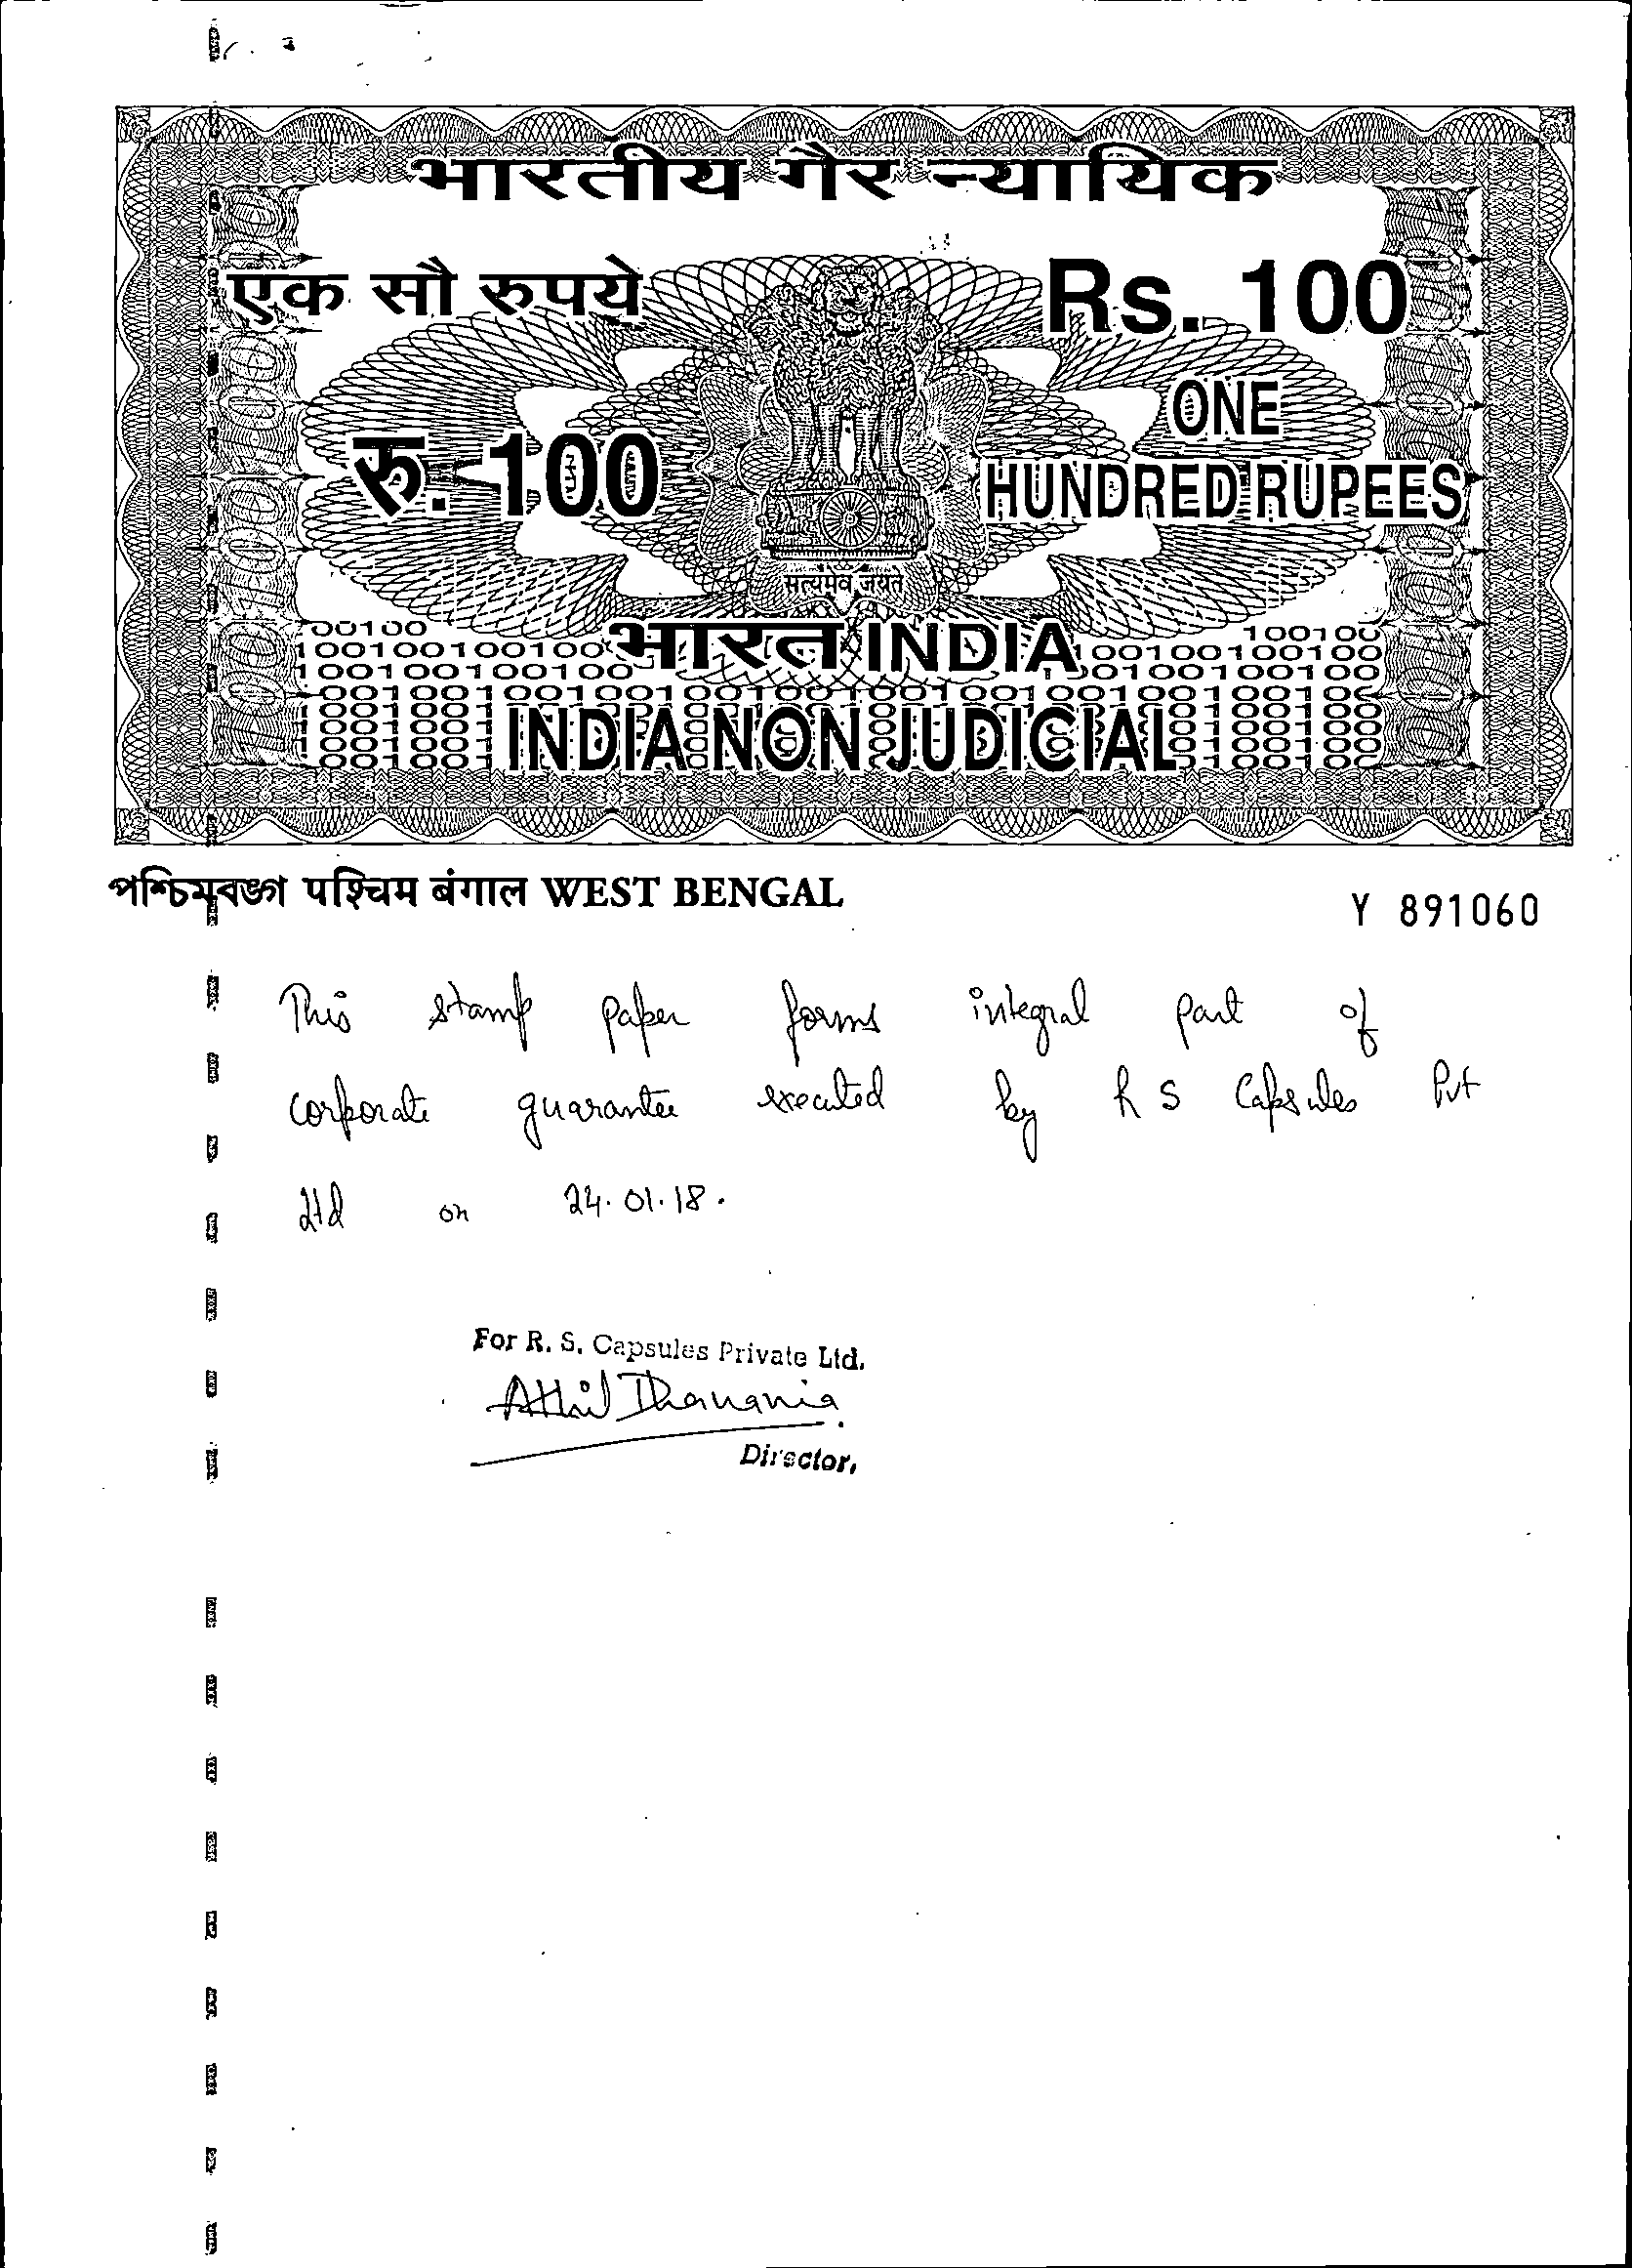 भारतीय गैर न्यायिक
एक सौ रुपये
Rs. 100
रु. 100
ONE
HUNDRED RUPEES
सत्यमेव जयते
भारत INDIA
INDIA NON JUDICIAL
পশ্চিমবঙ্গ पश्चिम बंगाल WEST BENGAL
Y 891060
This stamp paper forms integral part of
corporate guarantee executed by R S Capsules Pvt
Ltd on 24.01.18.
For R. S. Capsules Private Ltd.
Dhanania
Director,